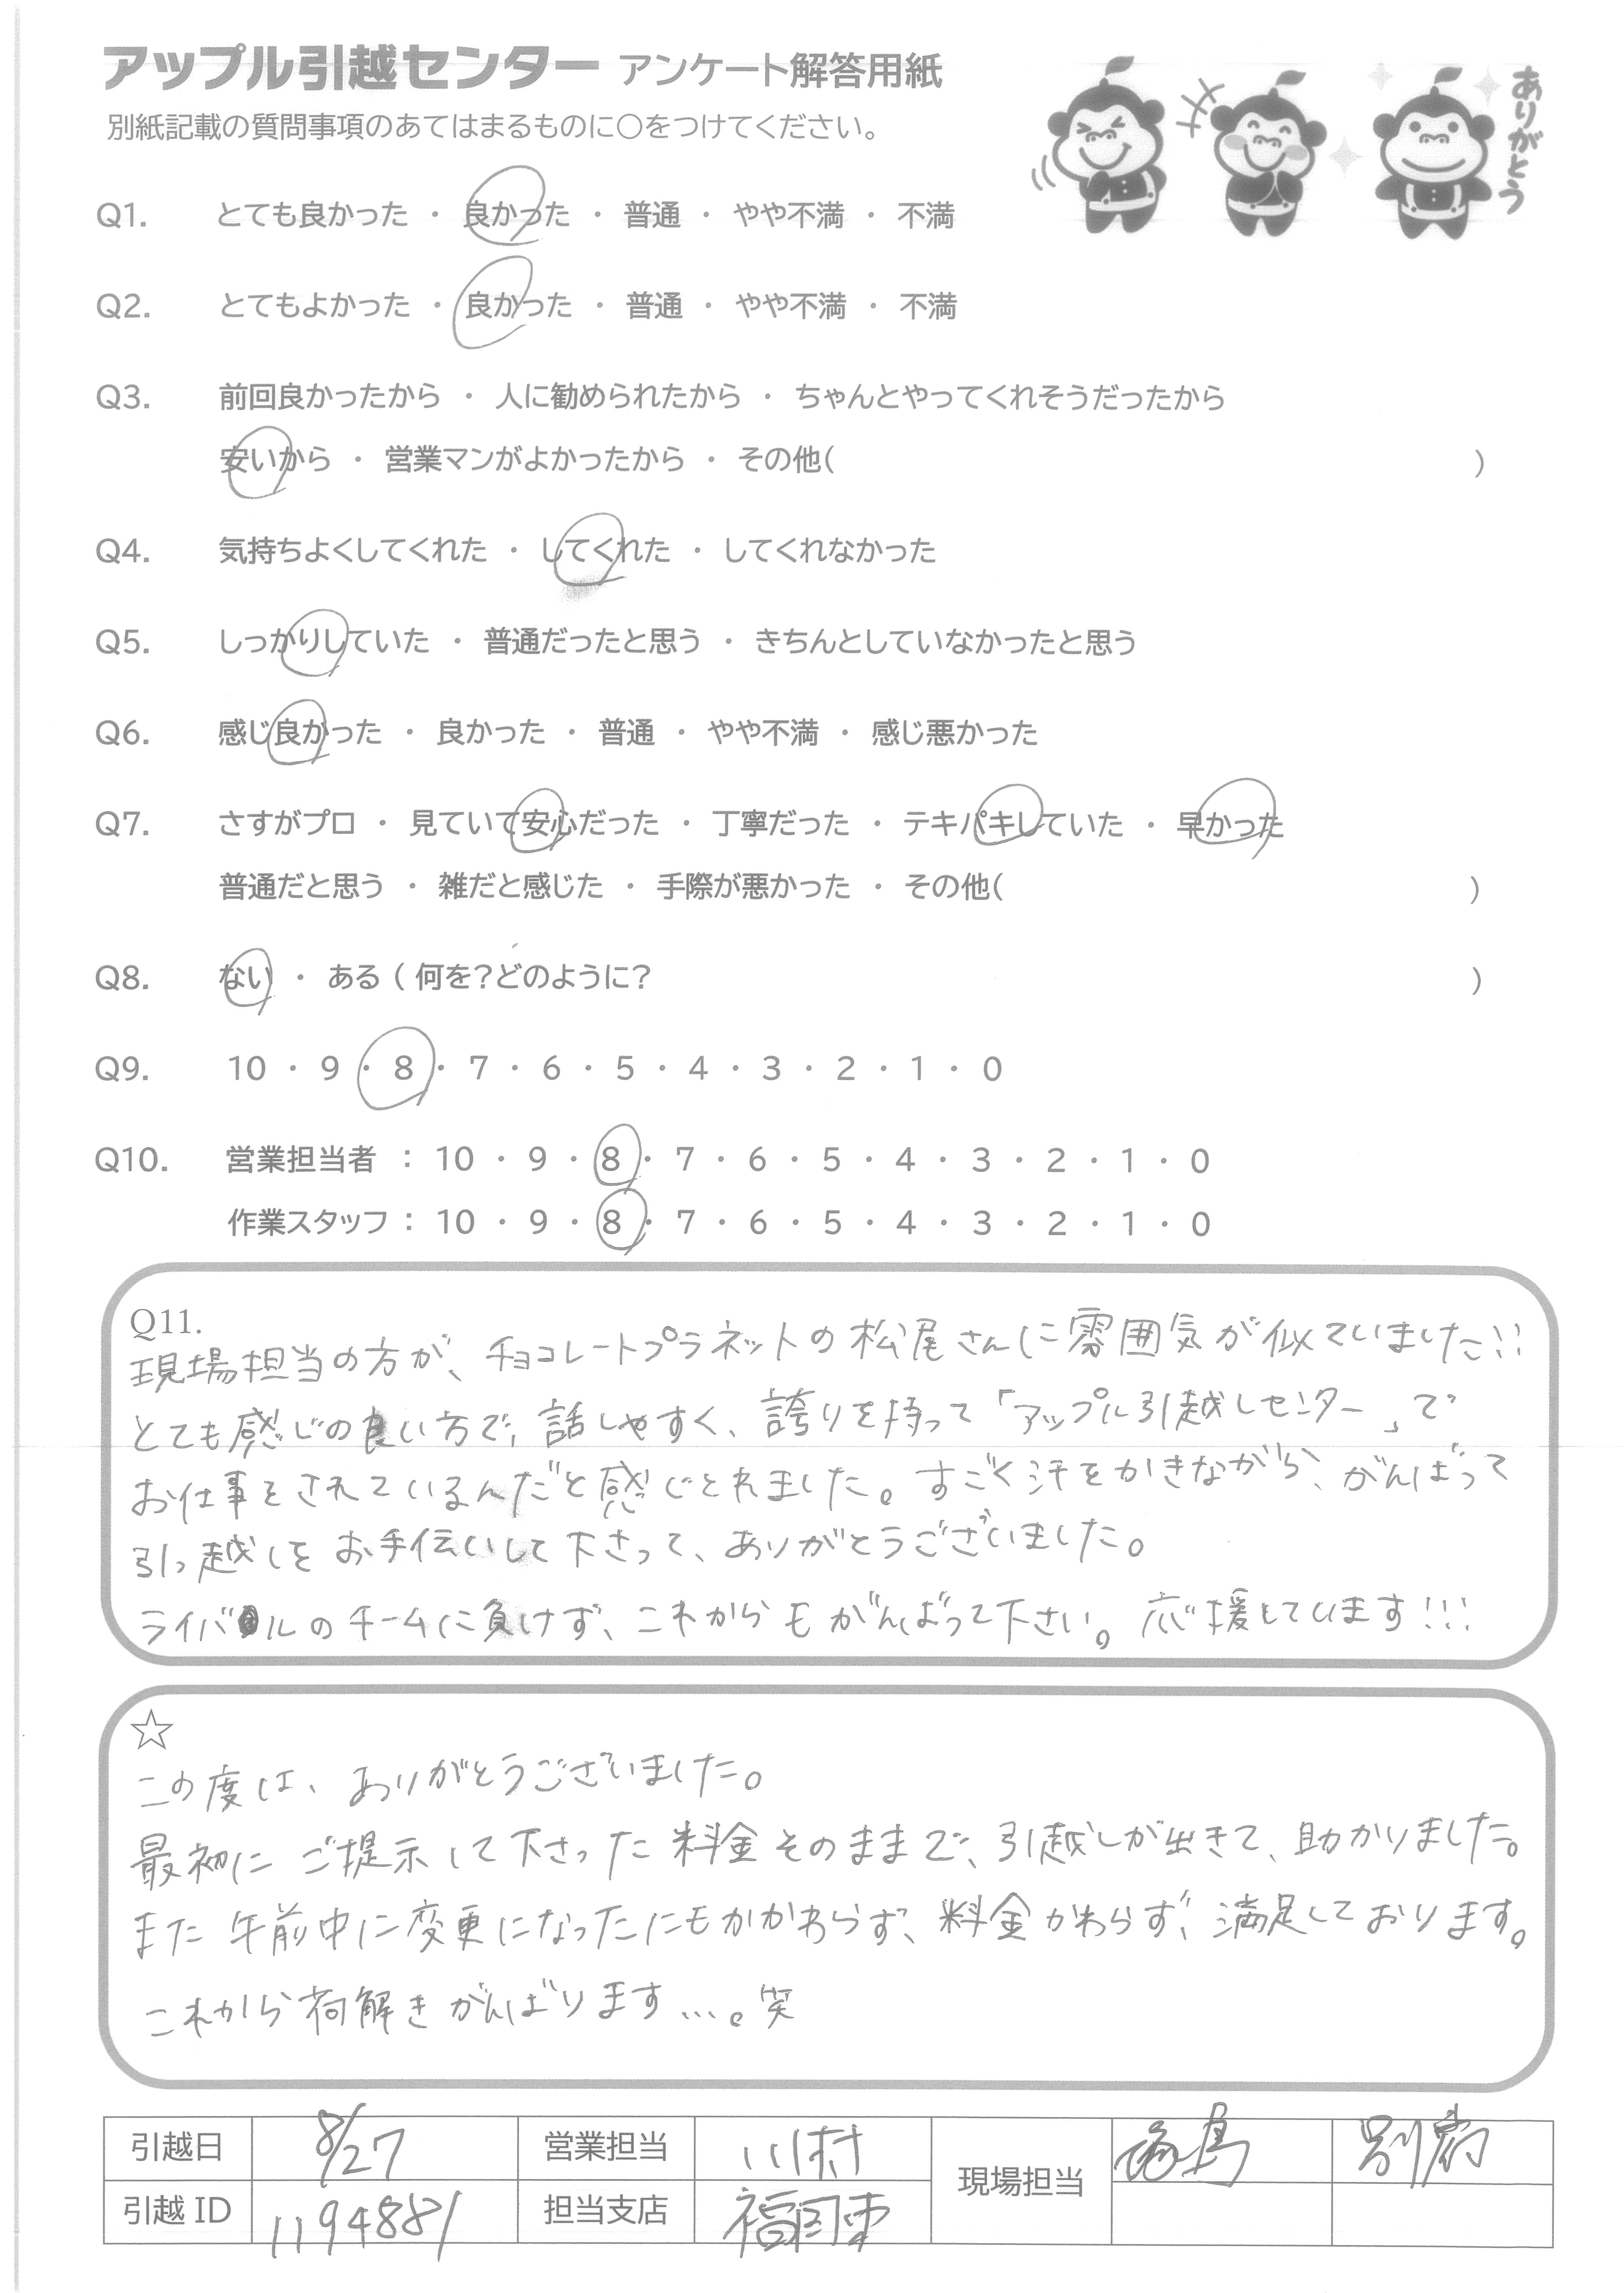 アップル引越センター アンケート解答用紙
ありがとう
別紙記載の質問事項のあてはまるものに○をつけてください。
Q1. とても良かった ・ 良かった ・ 普通 ・ やや不満 ・ 不満
Q2. とてもよかった ・ 良かった ・ 普通 ・ やや不満 ・ 不満
Q3. 前回良かったから ・ 人に勧められたから ・ ちゃんとやってくれそうだったから
安いから ・ 営業マンがよかったから ・ その他( )
Q4. 気持ちよくしてくれた ・ してくれた ・ してくれなかった
Q5. しっかりしていた ・ 普通だったと思う ・ きちんとしていなかったと思う
Q6. 感じ良かった ・ 良かった ・ 普通 ・ やや不満 ・ 感じ悪かった
Q7. さすがプロ ・ 見ていて安心だった ・ 丁寧だった ・ テキパキしていた ・ 早かった
普通だと思う ・ 雑だと感じた ・ 手際が悪かった ・ その他( )
Q8. ない ・ ある ( 何を?どのように? )
Q9. 10 ・ 9 ・ 8 ・ 7 ・ 6 ・ 5 ・ 4 ・ 3 ・ 2 ・ 1 ・ 0
Q10. 営業担当者 : 10 ・ 9 ・ 8 ・ 7 ・ 6 ・ 5 ・ 4 ・ 3 ・ 2 ・ 1 ・ 0
作業スタッフ : 10 ・ 9 ・ 8 ・ 7 ・ 6 ・ 5 ・ 4 ・ 3 ・ 2 ・ 1 ・ 0
Q11.
現場担当の方が、チョコレートプラネットの松尾さんに雰囲気が似ていました!!
とても感じの良い方で、話しやすく、誇りを持って「アップル引越しセンター」で
お仕事をされているんだと感じとれました。すごく汗をかきながら、がんばって
引っ越しをお手伝いして下さって、ありがとうございました。
ライバルのチームに負けず、これからもがんばって下さい。応援しています!!!
☆
この度は、ありがとうございました。
最初にご提示して下さった料金そのままで、引越しが出きて、助かりました。
また午前中に変更になったにもかかわらず、料金かわらず、満足しております。
これから荷解きがんばります…。笑
引越日 8/27 営業担当 川村 現場担当 別府
引越ID 1194881 担当支店 福岡東